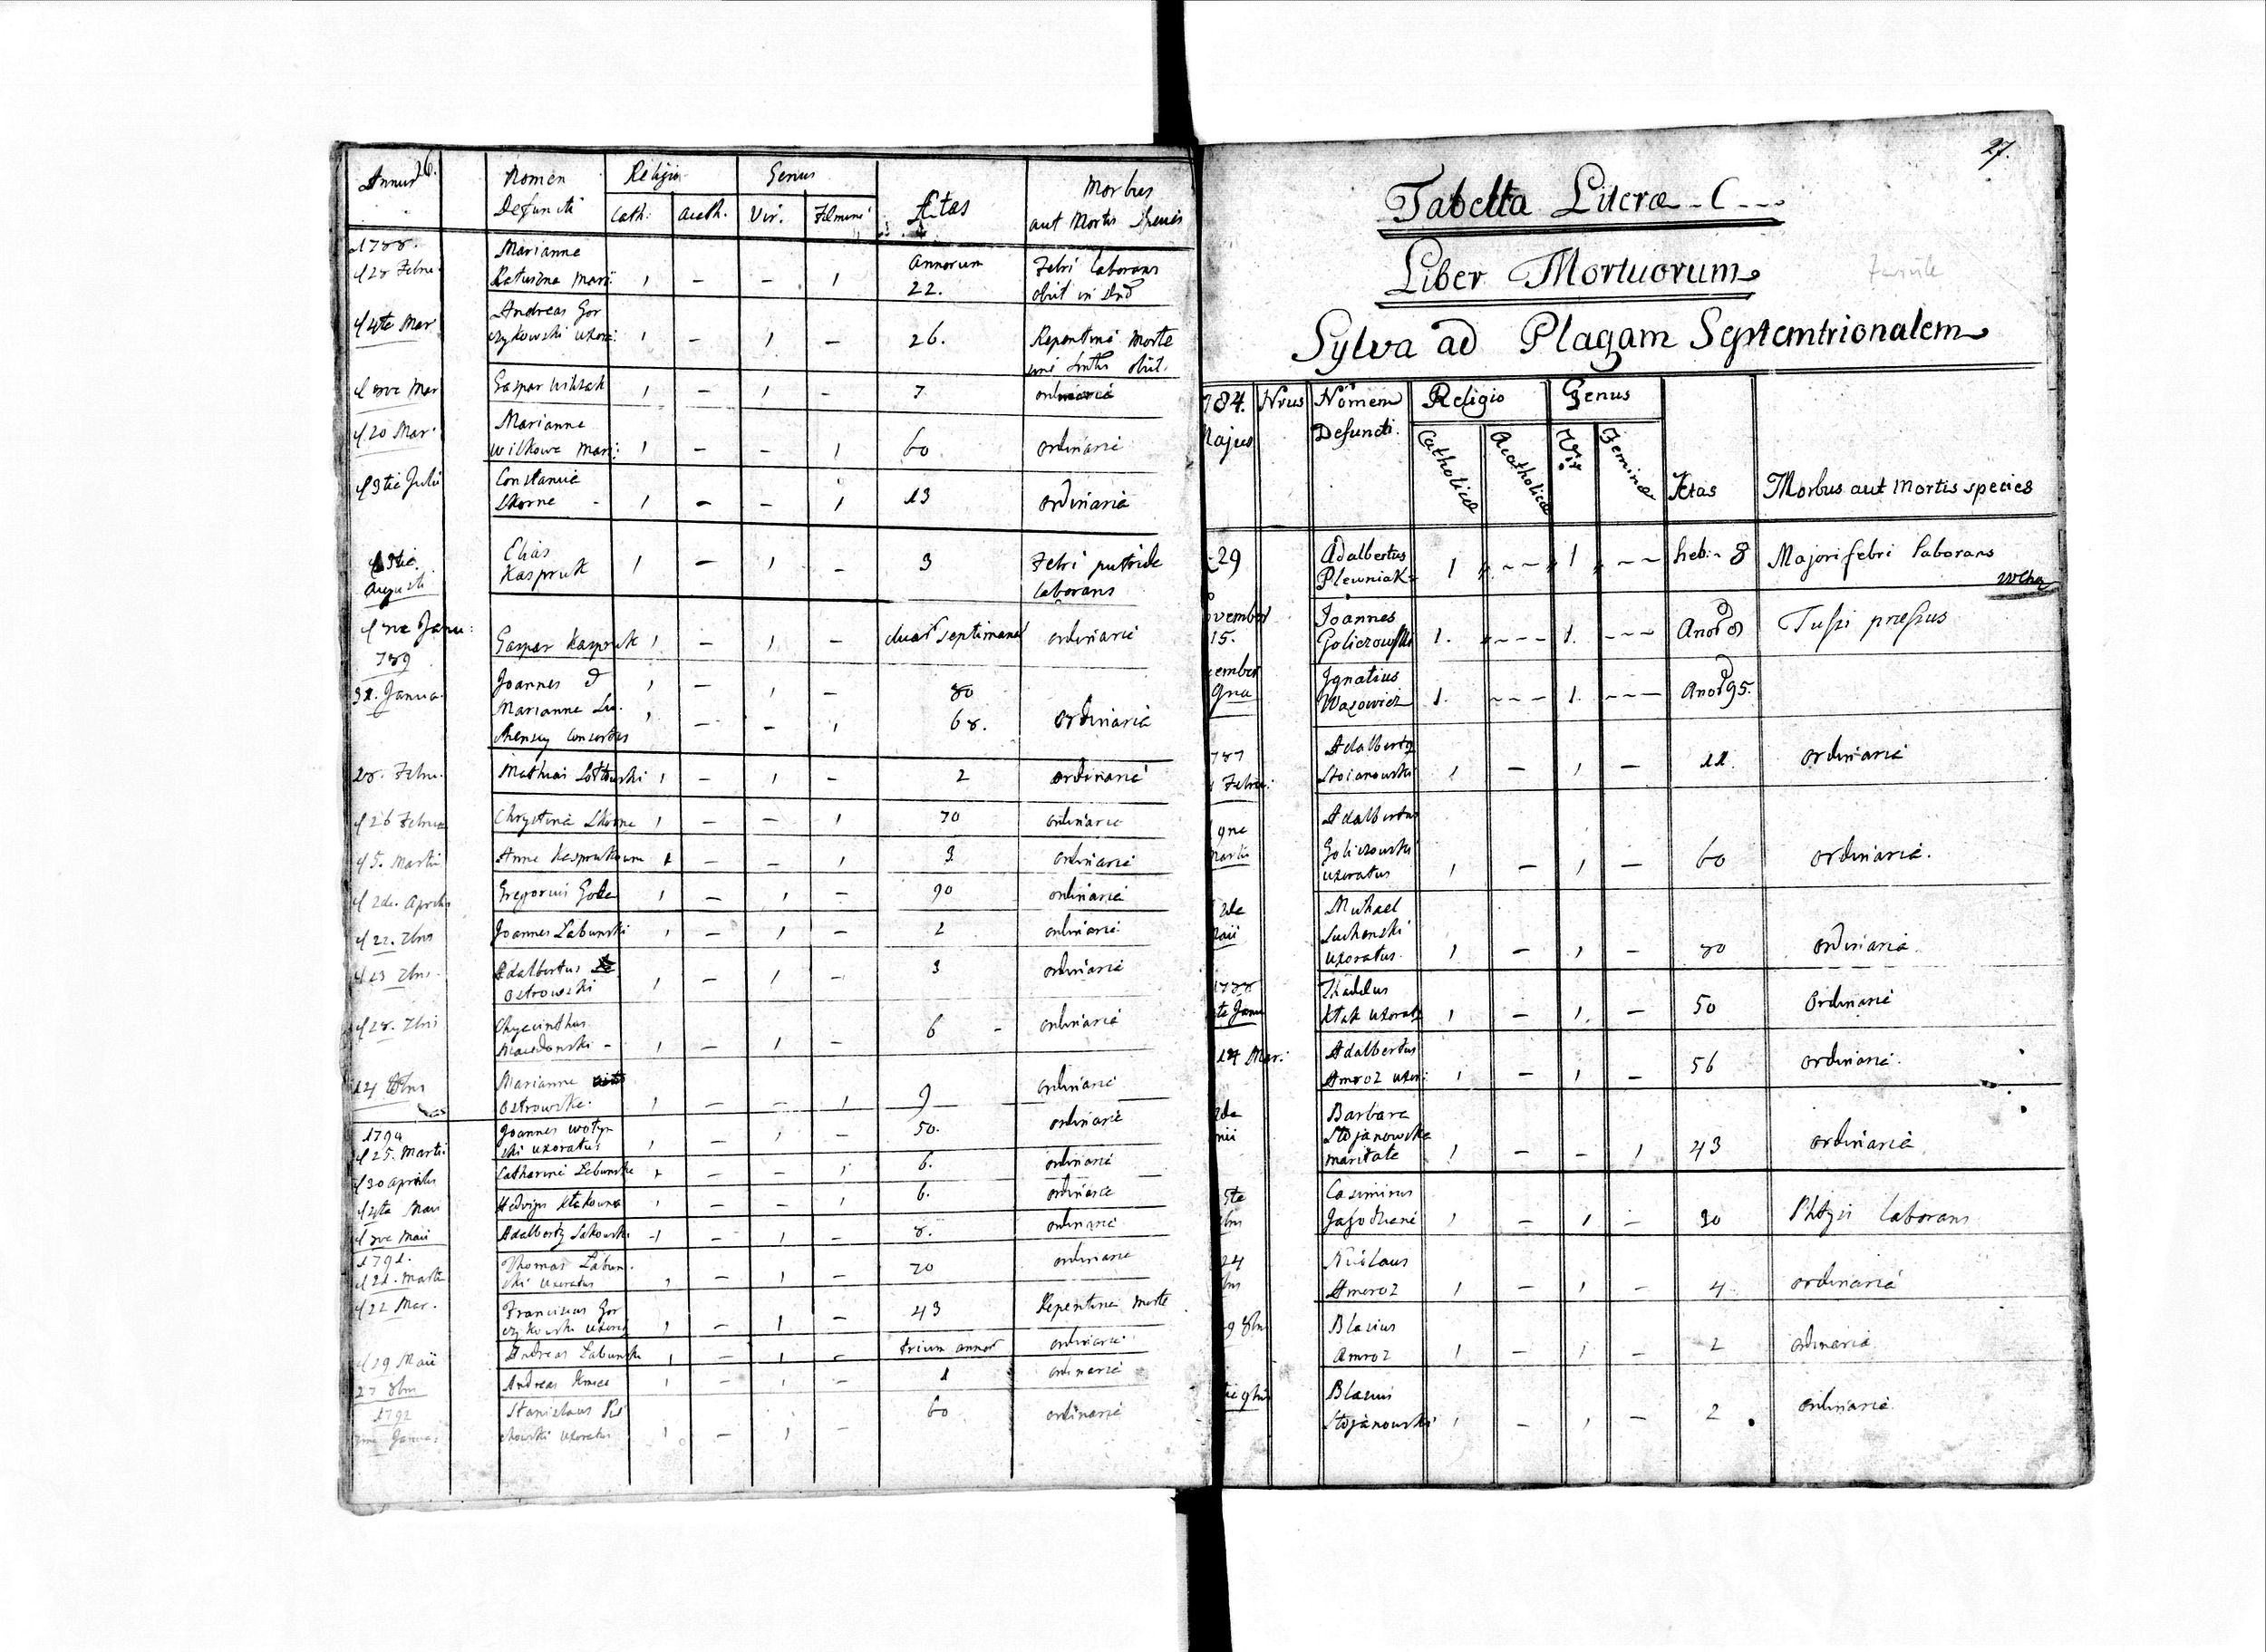 26.
Annus
Nomen
Defuncti
Religio
Cath: Acath.
Genus
Vir. Femine
Ætas
Morbus
aut Mortis Species
1788.
d 28 Febru
Marianna
mari: 1 – – 1
Annorum
22.
Febri laborans
obiit in
d 4ta Mar
Andreas Gor
czykowski uxor: 1 – 1 – 26.
Repentina morte
obiit.
Mar
Gaspar 1 – 1 – 7 ordinaria
d 20 Mar
Marianna
Wilkowa Mari: 1 – – 1 60 ordinaria
d 3tia Julii
Constancia
Skorne - 1 – – 1 13 ordinaria
Augusti
Elias
Kaspruk 1 – 1 – 3
Febri putrida
laborans
Janu:
789
Gaspar Kaspruk 1 – 1 – duar septimanar ordinaria
31. Janua
Joannes et 1 – 1 – 80
Marianna
consortes 1 – – 1 68. ordinaria
28. Febru.
Mathias 1 – 1 – 2 ordinaria
d 26 Februa
Chrystina Skorne 1 – – 1 70 ordinaria
d 5. Martii
Anna Kasprukowna 1 – – 1 3 ordinaria
d 2da. Aprilis
Gregorius 1 – 1 – 90 ordinaria
d 22. 7bris
Joannes Labunski 1 – 1 – 2 ordinaria
d 23 7bris.
Adalbertus
Ostrowski 1 – 1 – 3 ordinaria
d 28. 7bris
Chyacinthus
Macedonski - 1 – 1 – 6 - ordinaria
Marianna
Ostrowska. 1 – – 1 9 ordinaria
1790
d 25. Martii
Joannes Wotyn
ski uxoratus 1 – 1 – 50. ordinaria
d 30 Aprilis
Catharina Labunska 1 – – 1 6. ordinaria
d 4ta Maii
Hedvigis 1 – – 1 6. ordinaria
Maii
Adalbertus Sakowski 1 – 1 – 8. ordinaria
1791.
d 21. Martii
Thomas Labun
ski uxoratus 1 – 1 – 70 ordinaria
d 22 Mar.
Franciscus Gor
czykowski uxorat 1 – 1 – 43 Repentina morte
d 29 Maii
Andreas Labunski 1 – 1 – trium annor ordinaria
27 8bris
Andreas Kmiec 1 – 1 – 1 ordinaria
1792
Janua:
Stanislaus
uxoratus 1 – 1 – 60 ordinaria
27.
Tabella Literæ - C - - -
Liber Mortuorum
Sylva ad Plagam Septemtrionalem
784.
Majus
Nrus
Nomen
Defuncti.
Religio
Catholica
Acatholica
Genus
Vir
Femina
Ætas
Morbus aut Mortis species
29
Adalbertus
Plewniak 1 – – 1 – – heb: 8 Majori febri laborans
vember
15.
Joannes
Goliczowski 1. - - - 1. - - - Anor 8 Tussi pressus
ember
9na
Ignatius
Wazowicz 1. - - - 1. - - - Anor 95.
787
Febru:
Adalbertus
Stoianowski 1 – 1 – 11. ordinaria
9na
Martii
Adalbertus
Goliczowski
uxoratus 1 – 1 – 60 ordinaria.
2da
Maii
Michael
uxoratus. 1 – 1 – 80 ordinaria.
1788
ta Janu
Thaddeus
Ktak uxorat 1 – 1. – 50 Ordinaria
14 Mar:
Adalbertus
Amroz uxor: 1 – 1 – 56 ordinaria.
2da
nii
Barbara
Stojanowska
maritata 1 – – 1 43 ordinaria
5ta
bris
Casimirus
1 – 1 – 30 Phtysi laborans
24
bris
Nicolaus
Amroz 1 – 1 – 4 ordinaria
9 8bris
Blasius
Amroz 1 – 1 – 2 ordinaria
tia 9bris
Blasius
Stojanowski 1 – 1 – 2 ordinaria